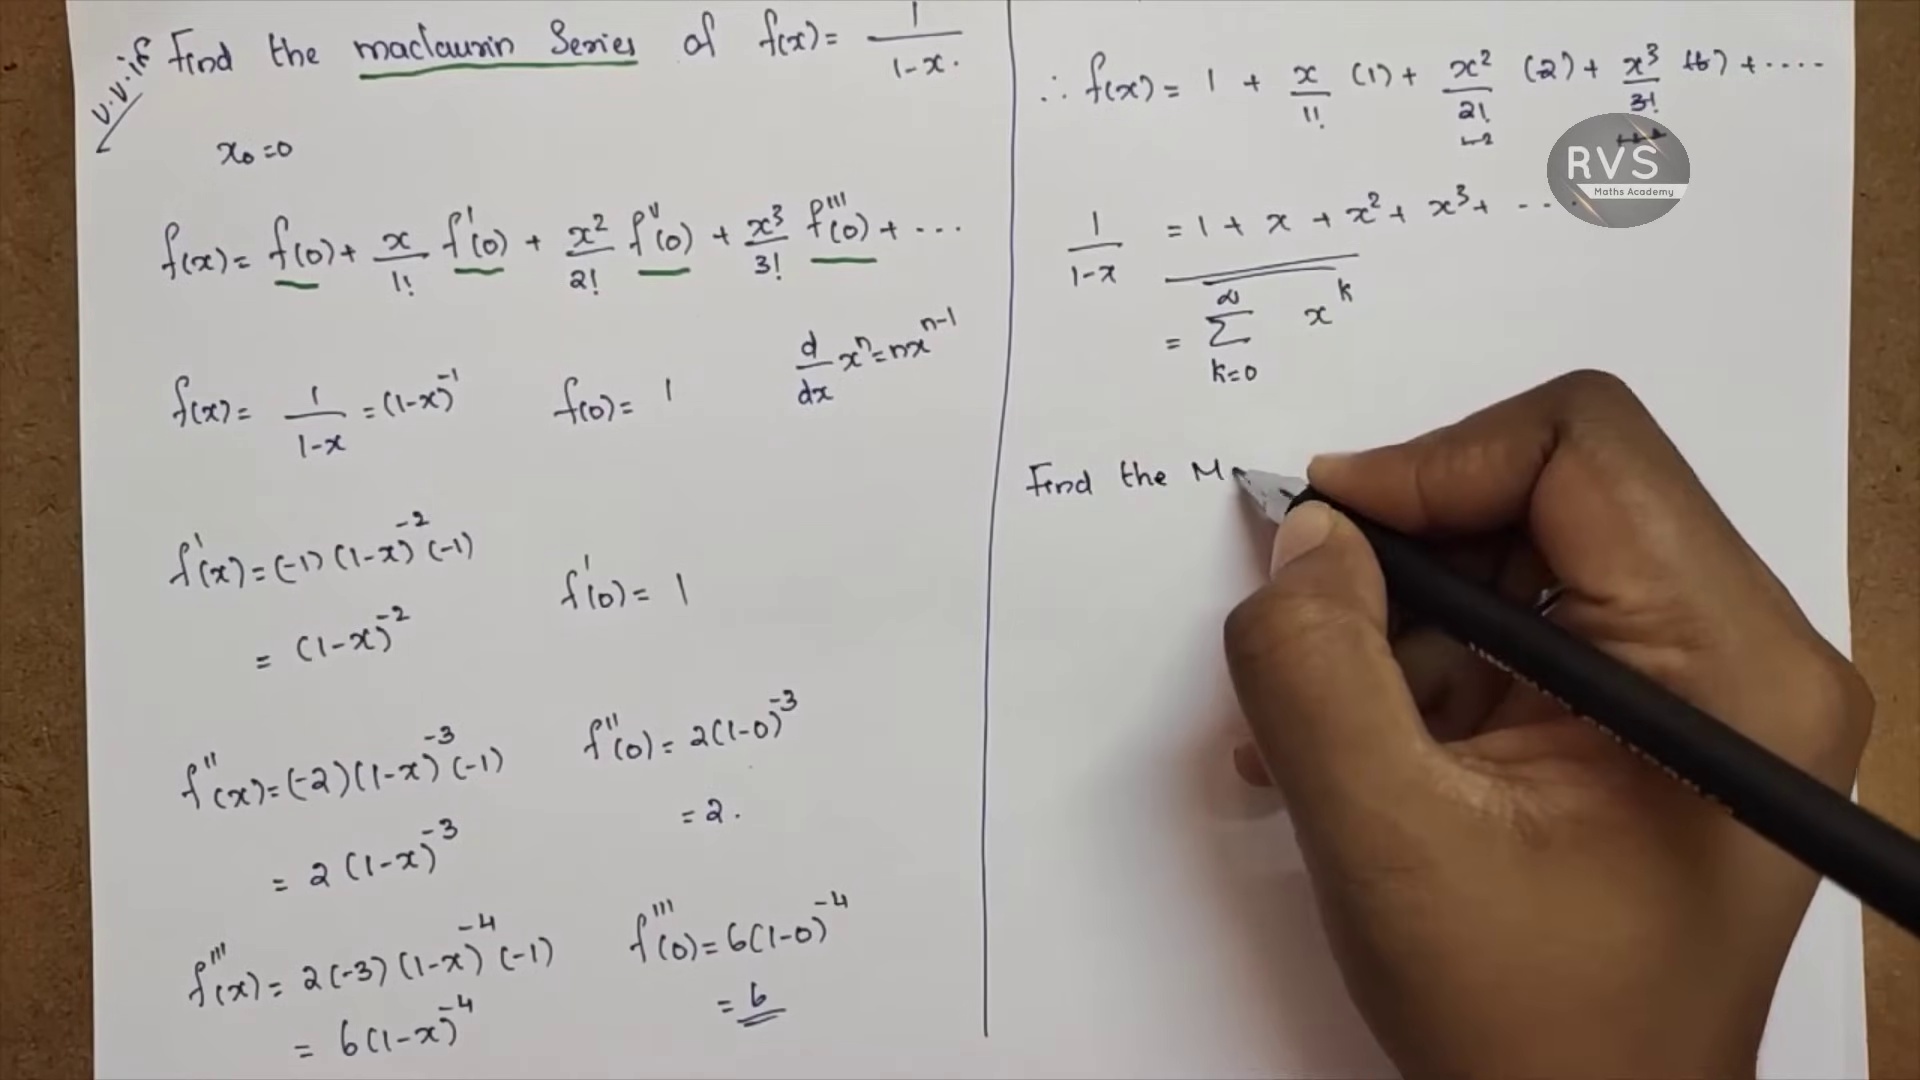 v.v.if Find the maclaurin Series of f(x) = 1/1-x.
x₀=0
f(x) = f(0) + x/1! f'(0) + x²/2! f''(0) + x³/3! f'''(0) + ...
d/dx xⁿ = nxⁿ⁻¹
f(x) = 1/1-x = (1-x)⁻¹ f(0) = 1
f'(x) = (-1)(1-x)⁻²(-1)
f'(0) = 1
= (1-x)⁻²
f''(x) = (-2)(1-x)⁻³(-1) f''(0) = 2(1-0)⁻³
= 2.
= 2(1-x)⁻³
f'''(x) = 2(-3)(1-x)⁻⁴(-1) f'''(0) = 6(1-0)⁻⁴
= 6
= 6(1-x)⁻⁴
∴ f(x) = 1 + x/1! (1) + x²/2! (2) + x³/3! (6) + ....
RVS
Maths Academy
1/1-x = 1 + x + x² + x³ + ....
= ∞ Σ k=0 xᵏ
Find the M